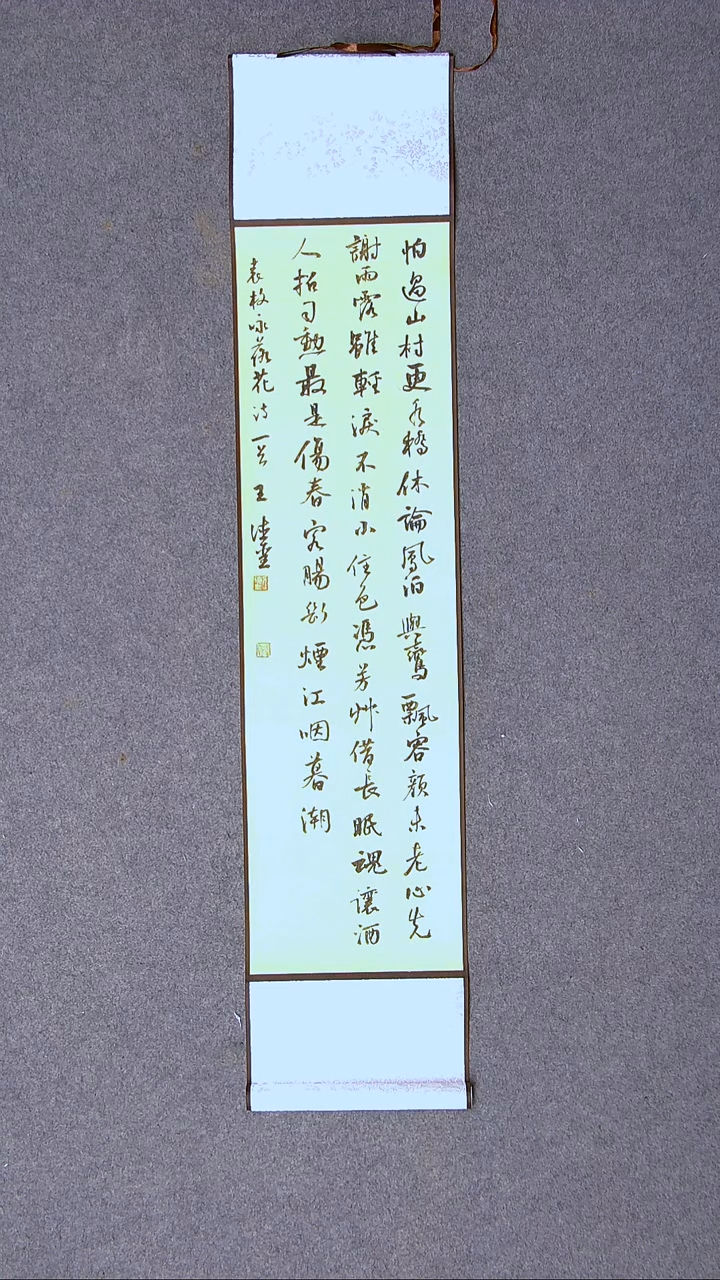 怕過山村更水橋休論鳳泊與鸞飄容顏未老心先
謝雨露雖輕淚不消小住色憑芳艸借長眠魂讓酒
人招司勳最是傷春客腸斷煙江咽暮潮
袁枚咏落花詩一首 王